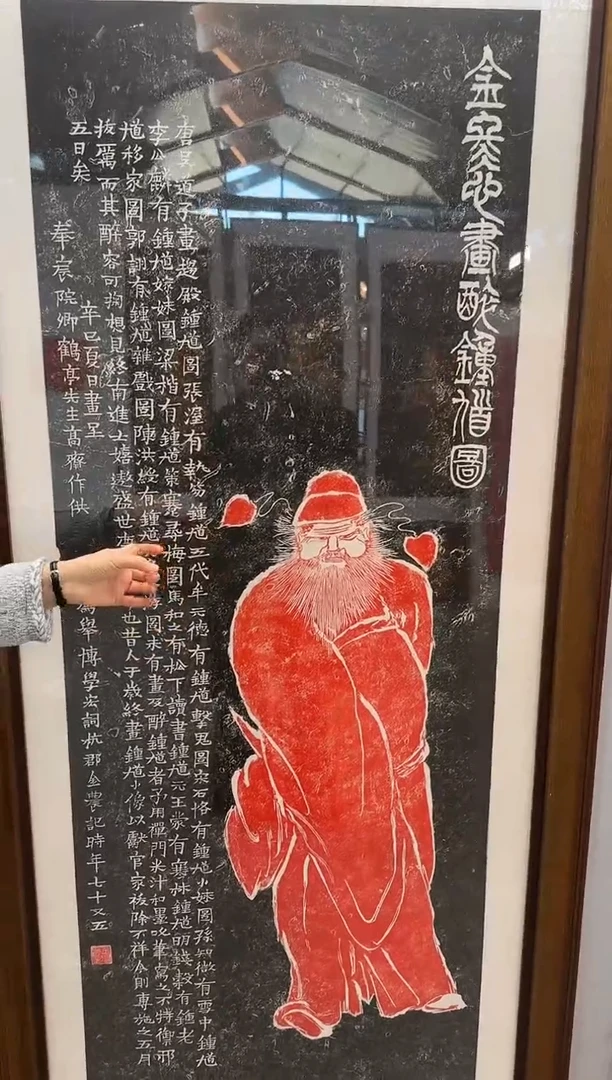 金冬心畫醉鍾馗圖
唐吳道子畫趨殿鍾馗圖張渥有執笏鍾馗五代牟元德有鍾馗擊鬼圖宋石恪有鍾馗小妹圖孫知微有雪中鍾馗
李公麟有鍾馗嫁妹圖梁楷有鍾馗策蹇尋梅圖馬和之有松下讀書鍾馗元王蒙有寒林鍾馗明錢穀有鍾老
馗移家圖郭詡有鍾馗雜戲圖陳洪綬有鍾馗圖未有畫及醉鍾馗者予用禪門米汁和墨吮筆寫之不特禦邪
拔厲而其醉容可掬想見終南進士嬉遨盛世也昔人于歲終畫鍾馗小像以獻官家祓除不祥今則專施之五月
五日矣
辛巳夏日畫呈
奉宸院卿鶴亭先生高齋作供薦舉博學宏詞杭郡金農記時年七十又五